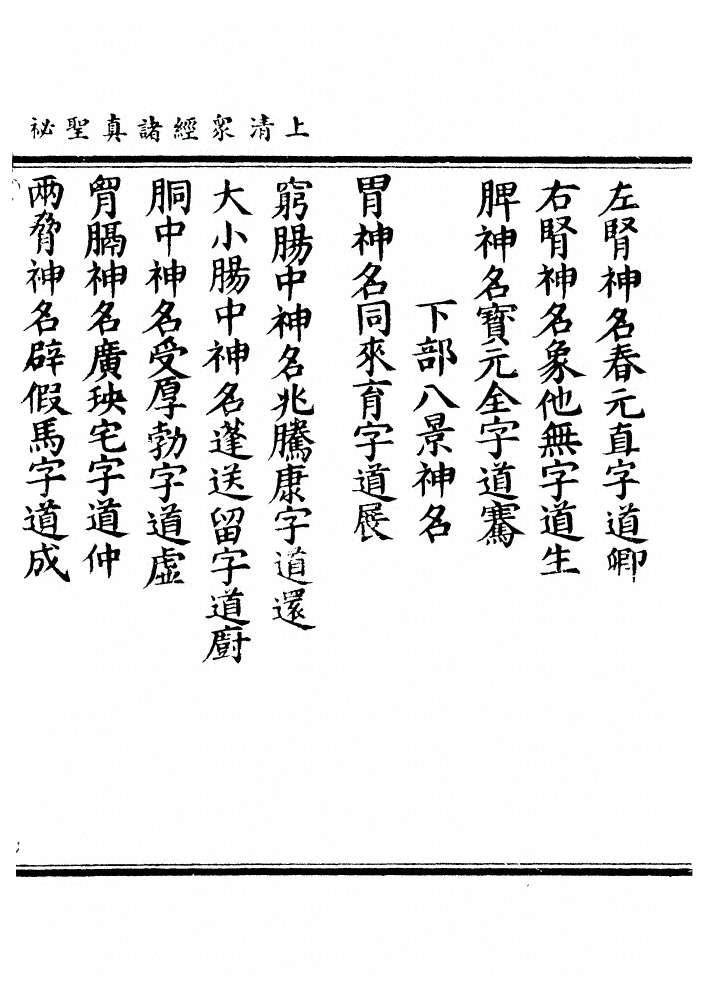 上清衆經諸真聖祕
左腎神名春元直字道卿
右腎神名象他無字道生
脾神名寶元全字道騫
下部八景神名
胃神名同來育字道展
窮腸中神名兆騰康字道還
大小腸中神名蓬送留字道廚
胴中神名受厚勃字道虛
胷膈神名廣瑛宅字道仲
兩脅神名辟假馬字道成